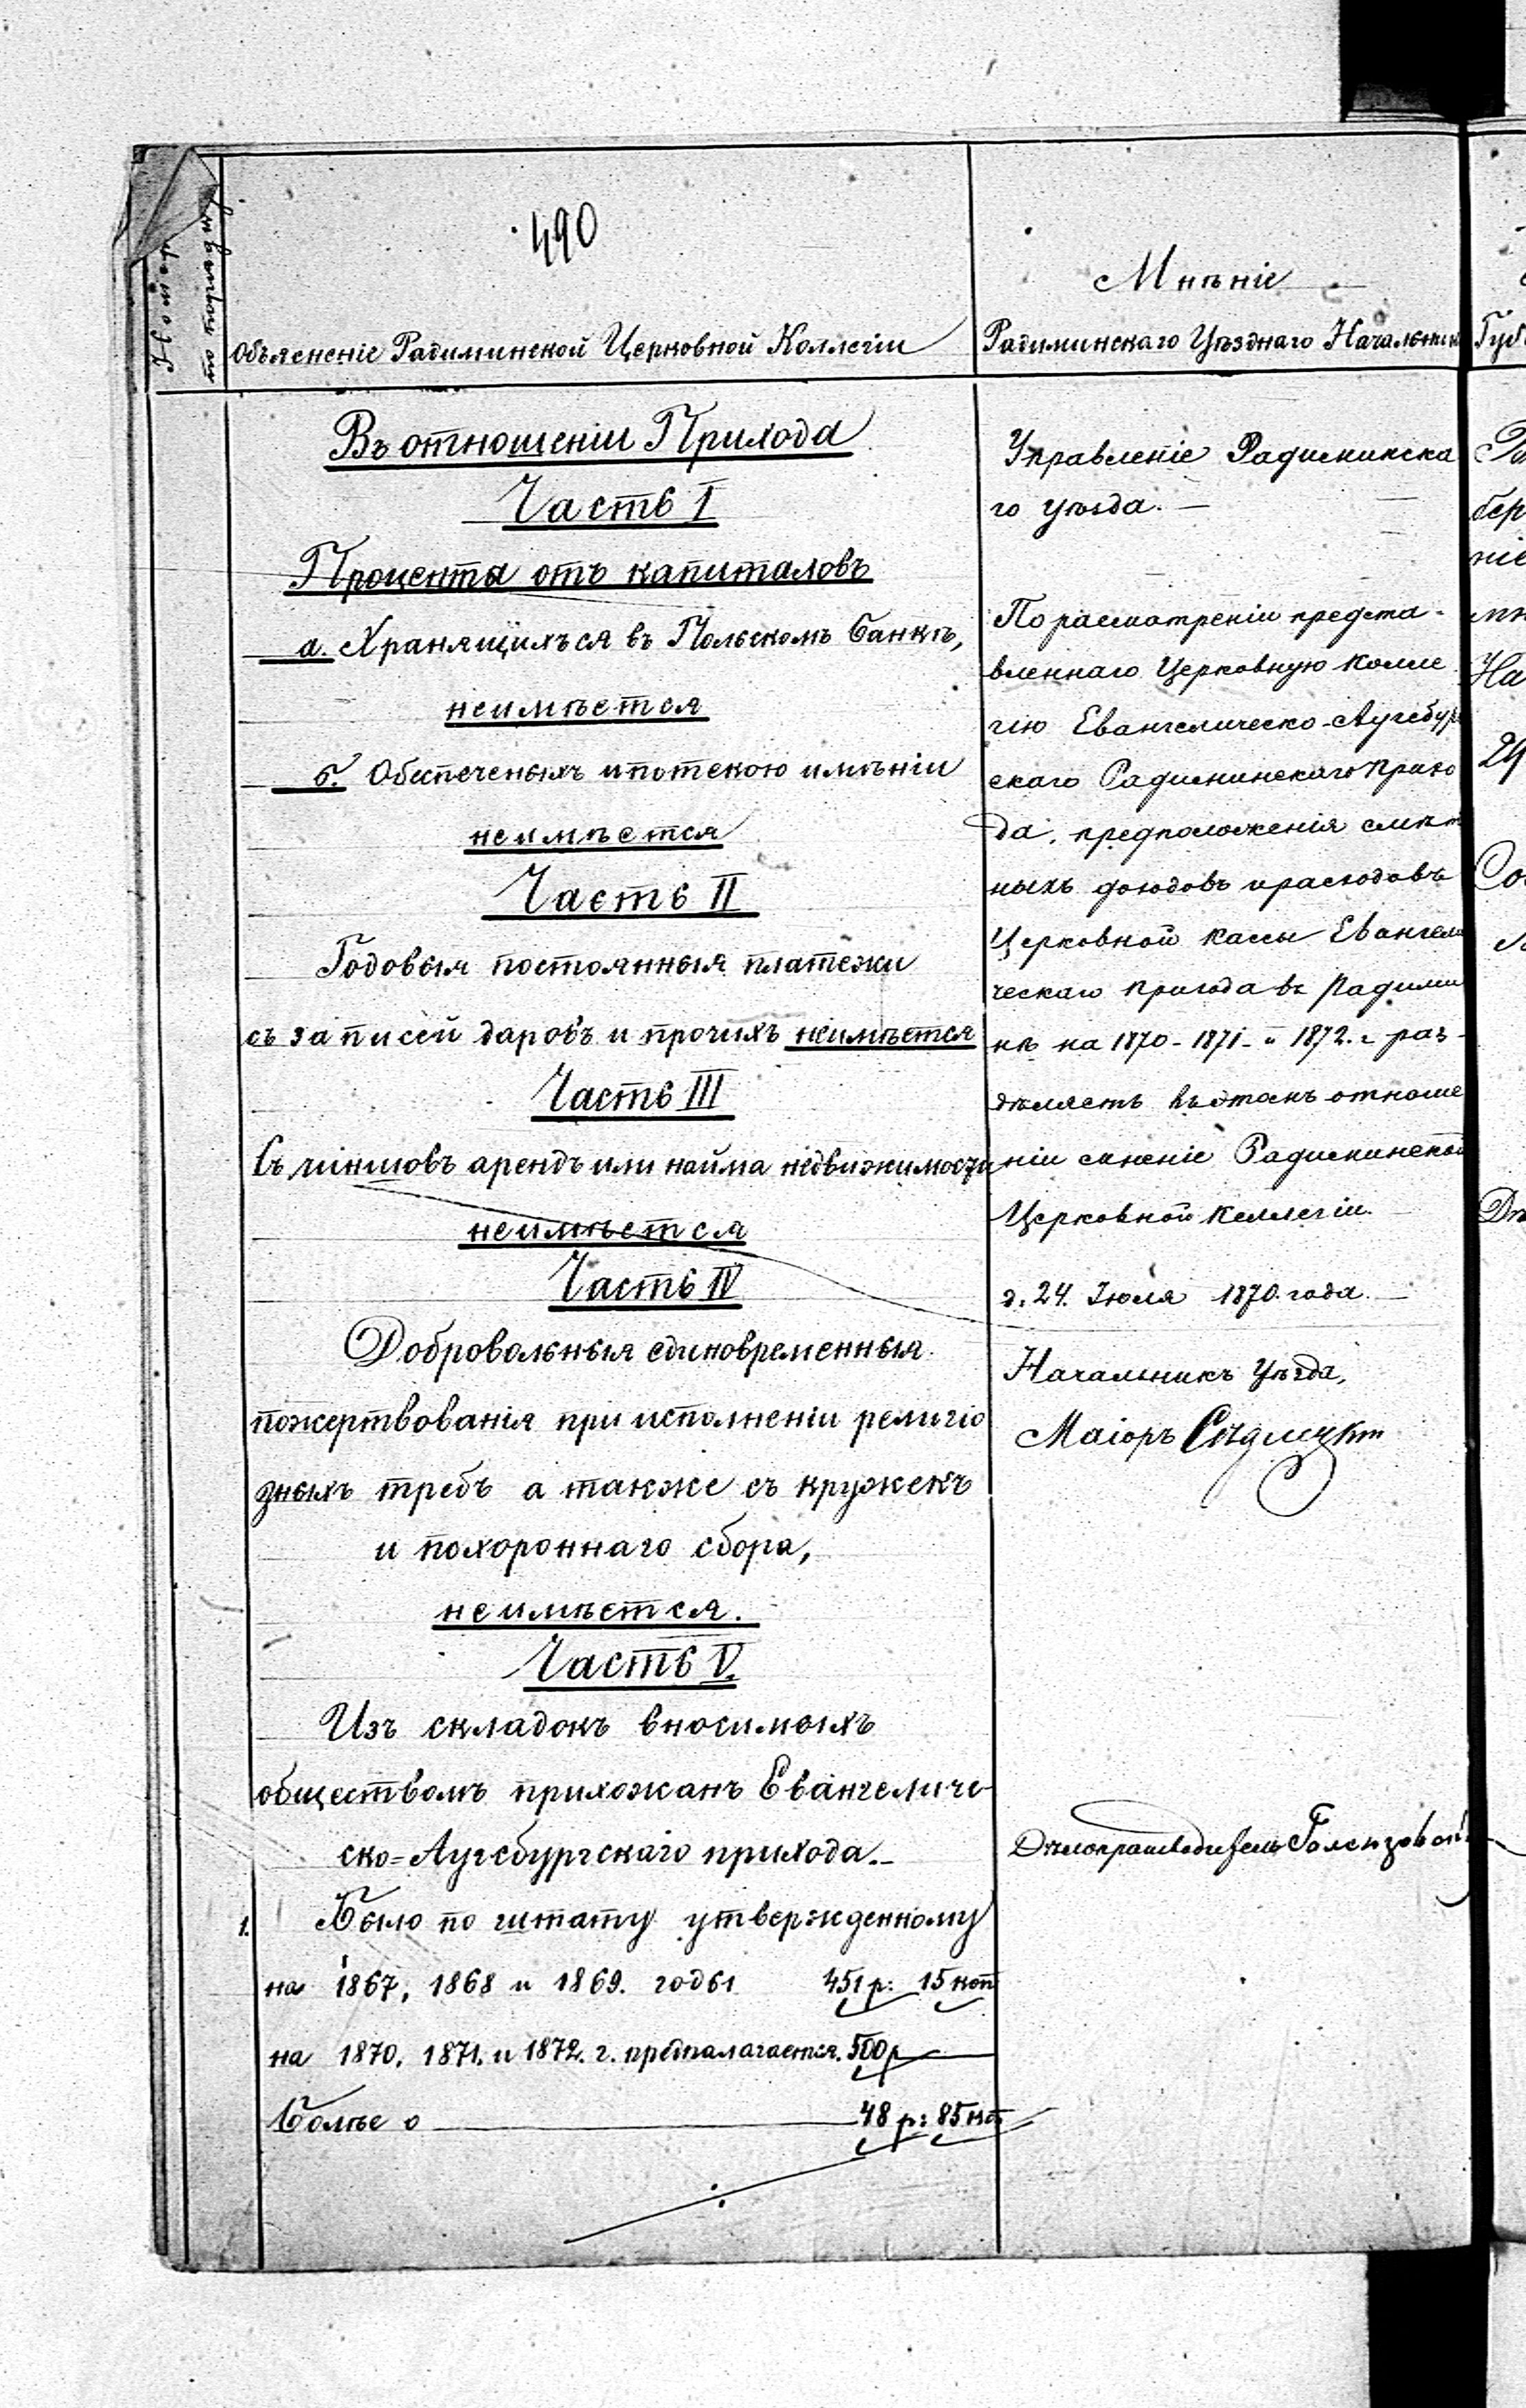 490
Номер
по порядку
Объясненіе Радиминской Церковной Коллегіи
Въ отношеніи Прихода
Часть I
Процента отъ капиталовъ
а. Хранящихъся въ Польскомъ банкѣ,
неимѣется
б. Обеспеченыхъ ипотекою имѣніи
неимѣется
Часть II
Годовыя постоянныя платежи
съ записей даровъ и прочихъ неимѣется
Часть III
Съ чиншовъ арендъ или найма недвижимости
неимѣется
Часть IV
Добровольныя единовременныя
пожертвованія при исполненіи религіо
зныхъ требъ а также съ кружекъ
и похороннаго сбора,
неимѣется.
Часть V.
Изъ складокъ вносимыхъ
обществомъ прихожанъ Евангеличе-
ско=Аугсбургскаго прихода.-
1. Было по штату утвержденному
на 1867, 1868 и 1869. годы 451 р: 15 коп
на 1870, 1871. и 1872. г. предпалагается. 500 р
Болѣе о 48 р: 85 коп
Мнѣніе
Радиминскаго Уѣзднаго Начальника
Управленіе Радиминска
го уѣзда. —
По расмотреніи предста-
вленнаго Церковную Колле
гію Евангелическо-Аугсбур
скаго Радиминскаго прихо
да, предположенія смѣт
ныхъ доходовъ и расходовъ
Церковной кассы Евангели
ческаго прихода въ Радими
нѣ на 1870-1871- и 1872. г раз-
дѣляетъ въ этомъ отноше
ніи мненіе Радиминской
Церковной Коллегіи.
д. 24. Іюля 1870 года. —
Начальникъ Уѣзда,
Маіоръ
Дѣлопроизводитель
Губ
бер
ніе
На